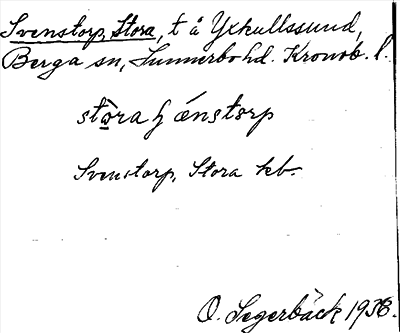 Svenstorp, Stora, t å Yxkullssund,
Berga sn, Sunnerbo hd. Kronob. l.
stora
Svenstorp, Stora kb.
O. Segerbäck 1938.